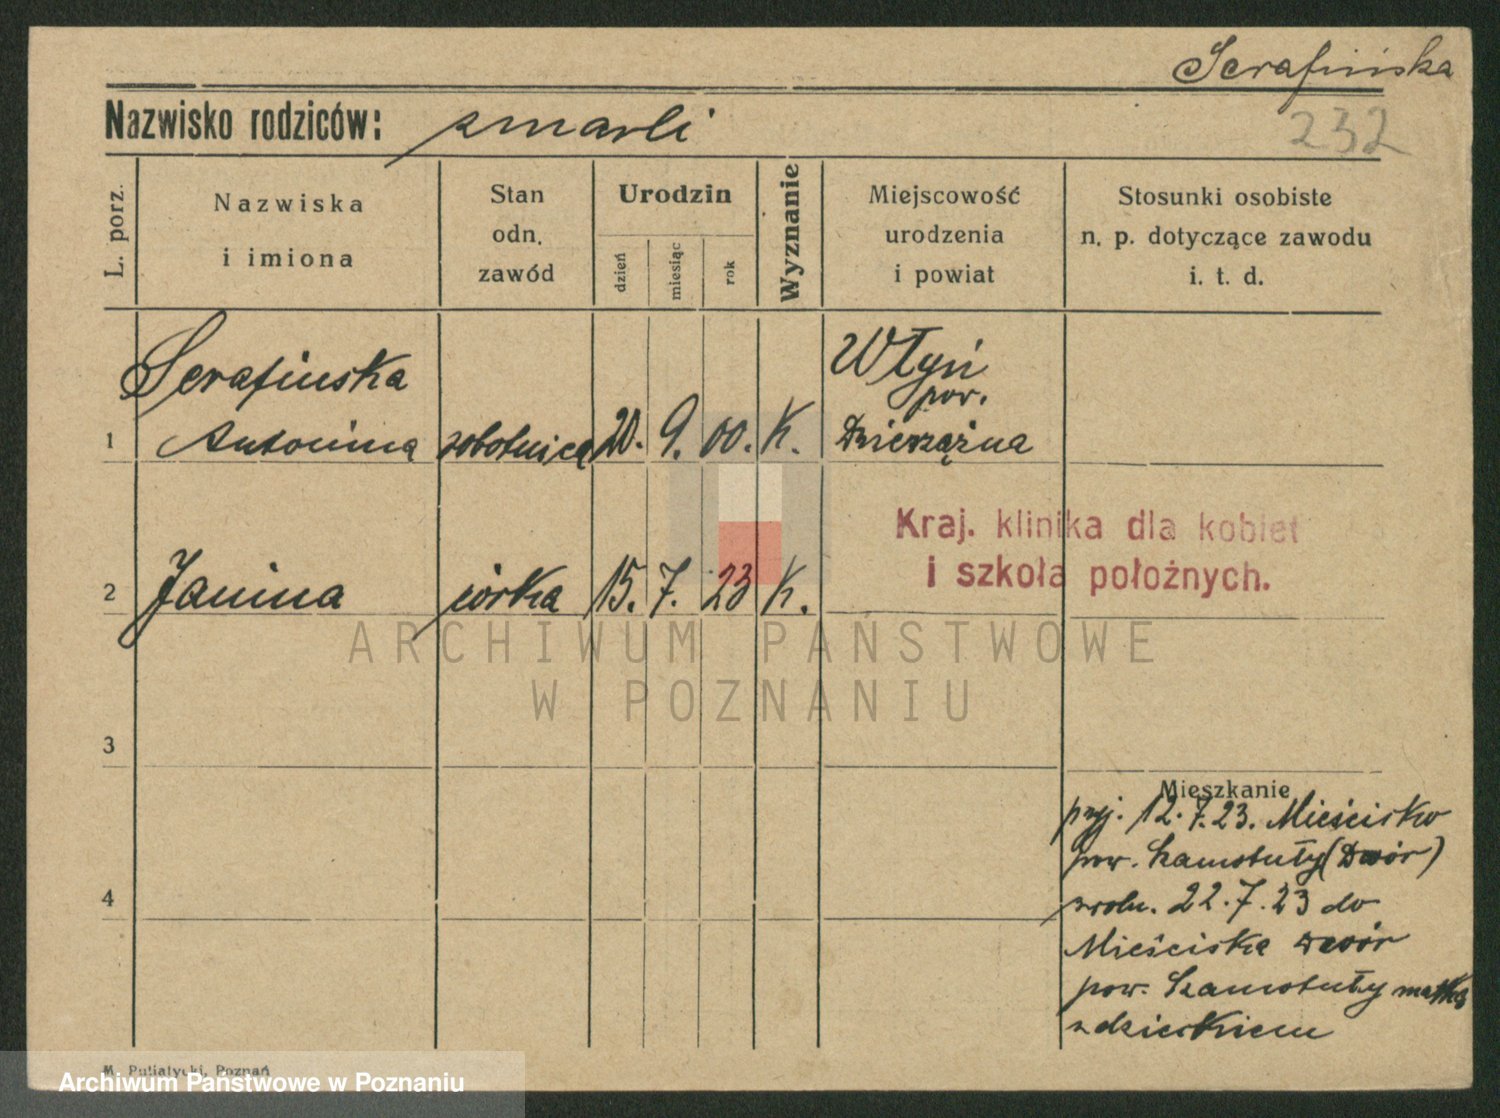 Serafińska
232
Nazwisko rodziców: zmarli
L. porz.
Nazwiska
i imiona
Stan
odn.
zawód
Urodzin
dzień
miesiąc
rok
Wyznanie
Miejscowość
urodzenia
i powiat
Stosunki osobiste
n. p. dotyczące zawodu
i. t. d.
Serafinska
1 Antonina robotnica 20. 9. 00. K.
Włyń
pow.
Kraj. klinika dla kobiet
i szkoła położnych.
2 Janina córka 15. 7. 23 K.
ARCHIWUM PAŃSTWOWE
W POZNANIU
3
4
Mieszkanie
przj. 12.7.23. Mieścisko
pow. Szamotuły (Dwór)
22.7.23 do
Mieściska Dwór
pow. Szamotuły matka
z dzieckiem
M. Putiatycki, Poznań
Archiwum Państwowe w Poznaniu